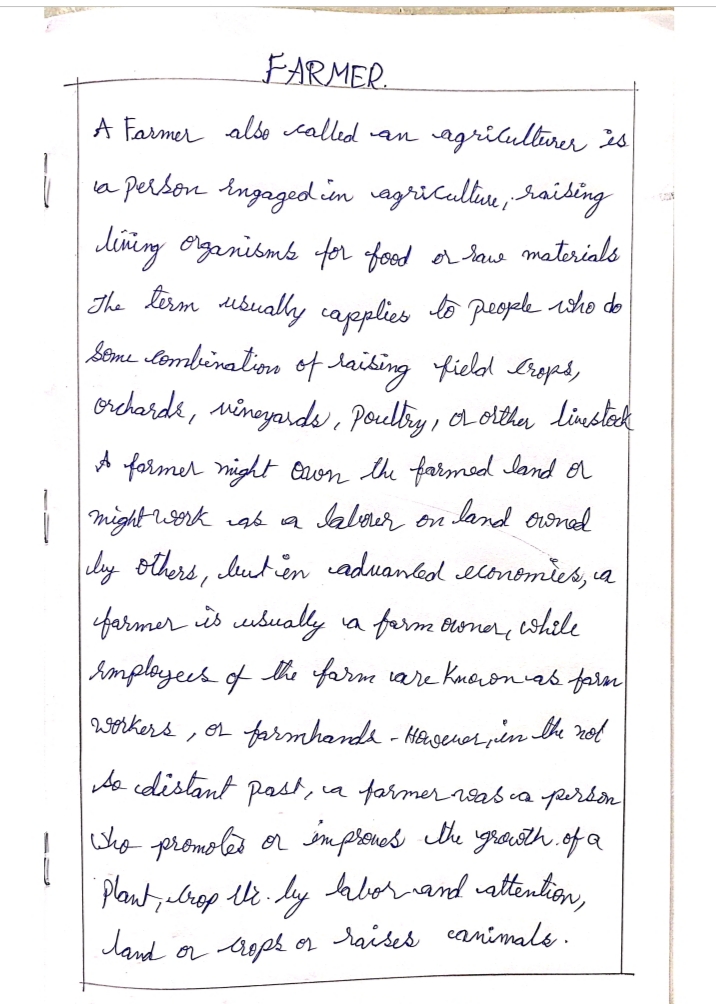 FARMER.
A Farmer also called an agriculturer is
a person engaged in agriculture, raising
living organisms for food or raw materials
The term usually applies to people who do
some combination of raising field crops,
orchards, vineyards, poultry, or orther livestock
A farmer might own the farmed land or
might work as a labourer on land owned
by others, but in advanced economies, a
farmer is usually a farm owner, while
employees of the farm are known as farm
workers, or farmhands - However, in the not
so distant past, a farmer was a person
who promotes or improves the growth. of a
Plant, crop etc. by labor and attention,
land or crops or raises animals.